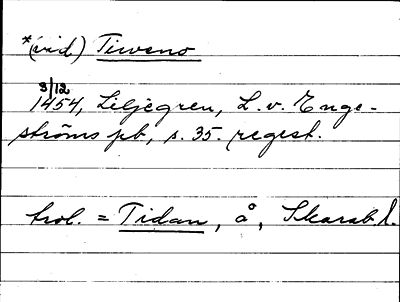 *(vid) Tiweno
3/12
1454, Liljegren, L. v. Enge-
ströms pb, s. 35. regest.
trol. = Tidan, å, Skarab. l.